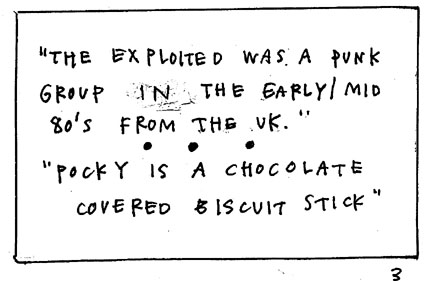 "THE EXPLOITED WAS A PUNK
GROUP IN THE EARLY/MID
80's FROM THE UK."
• • •
"POCKY IS A CHOCOLATE
COVERED BISCUIT STICK"
3